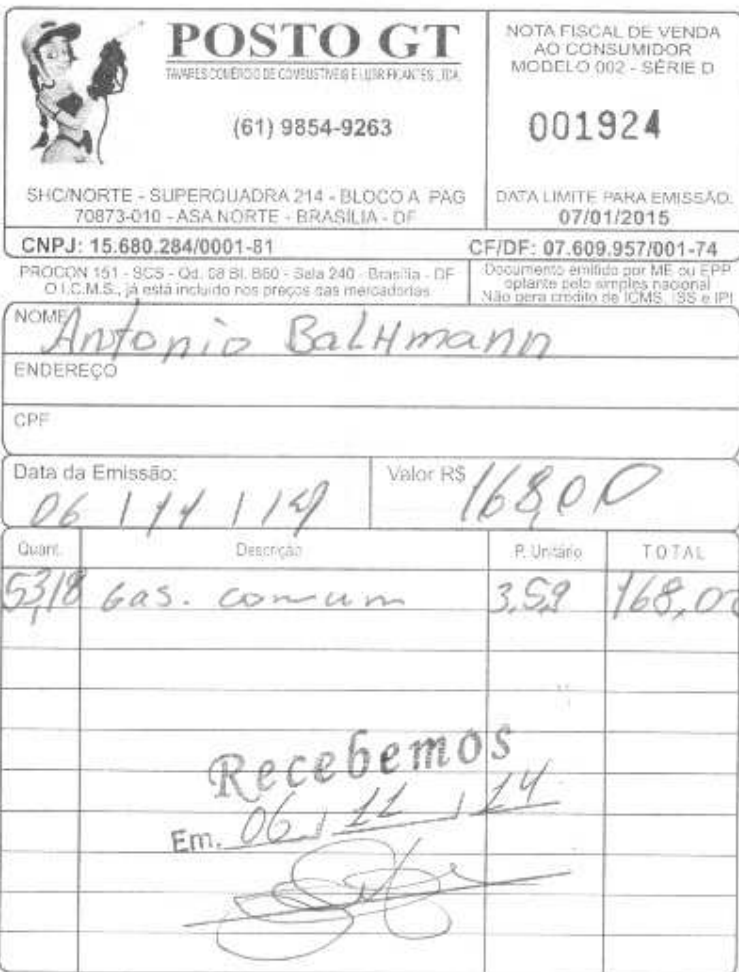 POSTO GT
TAVARES COMÉRCIO DE COMBUSTÍVEIS E LUBRIFICANTES LTDA.
(61) 9854-9263
SHC/NORTE - SUPERQUADRA 214 - BLOCO A PAG
70873-010 - ASA NORTE - BRASÍLIA - DF
NOTA FISCAL DE VENDA
AO CONSUMIDOR
MODELO 002 - SÉRIE D
001924
DATA LIMITE PARA EMISSÃO.
07/01/2015
CNPJ: 15.680.284/0001-81 CF/DF: 07.609.957/001-74
PROCON 151 - SCS - Qd. 08 Bl. B60 - Sala 240 - Brasília - DF
O I.C.M.S., já está incluído nos preços das mercadorias
Documento emitido por ME ou EPP
optante pelo simples nacional
Não gera crédito de ICMS, ISS e IPI
NOME Antonio BalHmann
ENDEREÇO
CPF
Data da Emissão: Valor R$ 168,00
06 / 11 / 14
Quant. Descrição P. Unitário TOTAL
53,18 Gas. comum 3,59 168,00
Recebemos
Em. 06 / 11 / 14